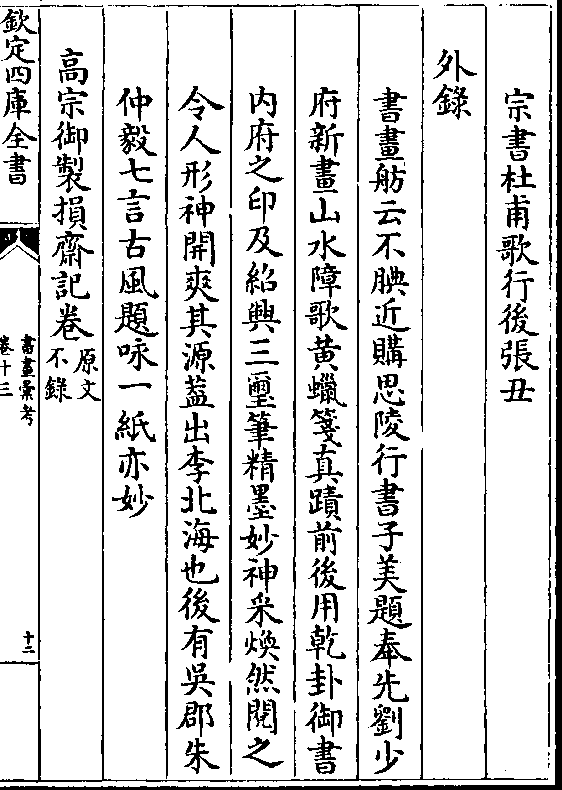 宗書杜甫歌行後張丑
外錄
書畫舫云不腆近購思陵行書子美題奉先劉少
府新畫山水障歌黃蠟箋真蹟前後用乾卦御書
內府之印及紹興三璽筆精墨妙神采煥然閱之
令人形神開爽其源葢出李北海也後有吳郡朱
仲毅七言古風題咏一紙亦妙
高宗御製損齋記卷原文不錄
欽定四庫全書
書畫彙考
卷十三
十二